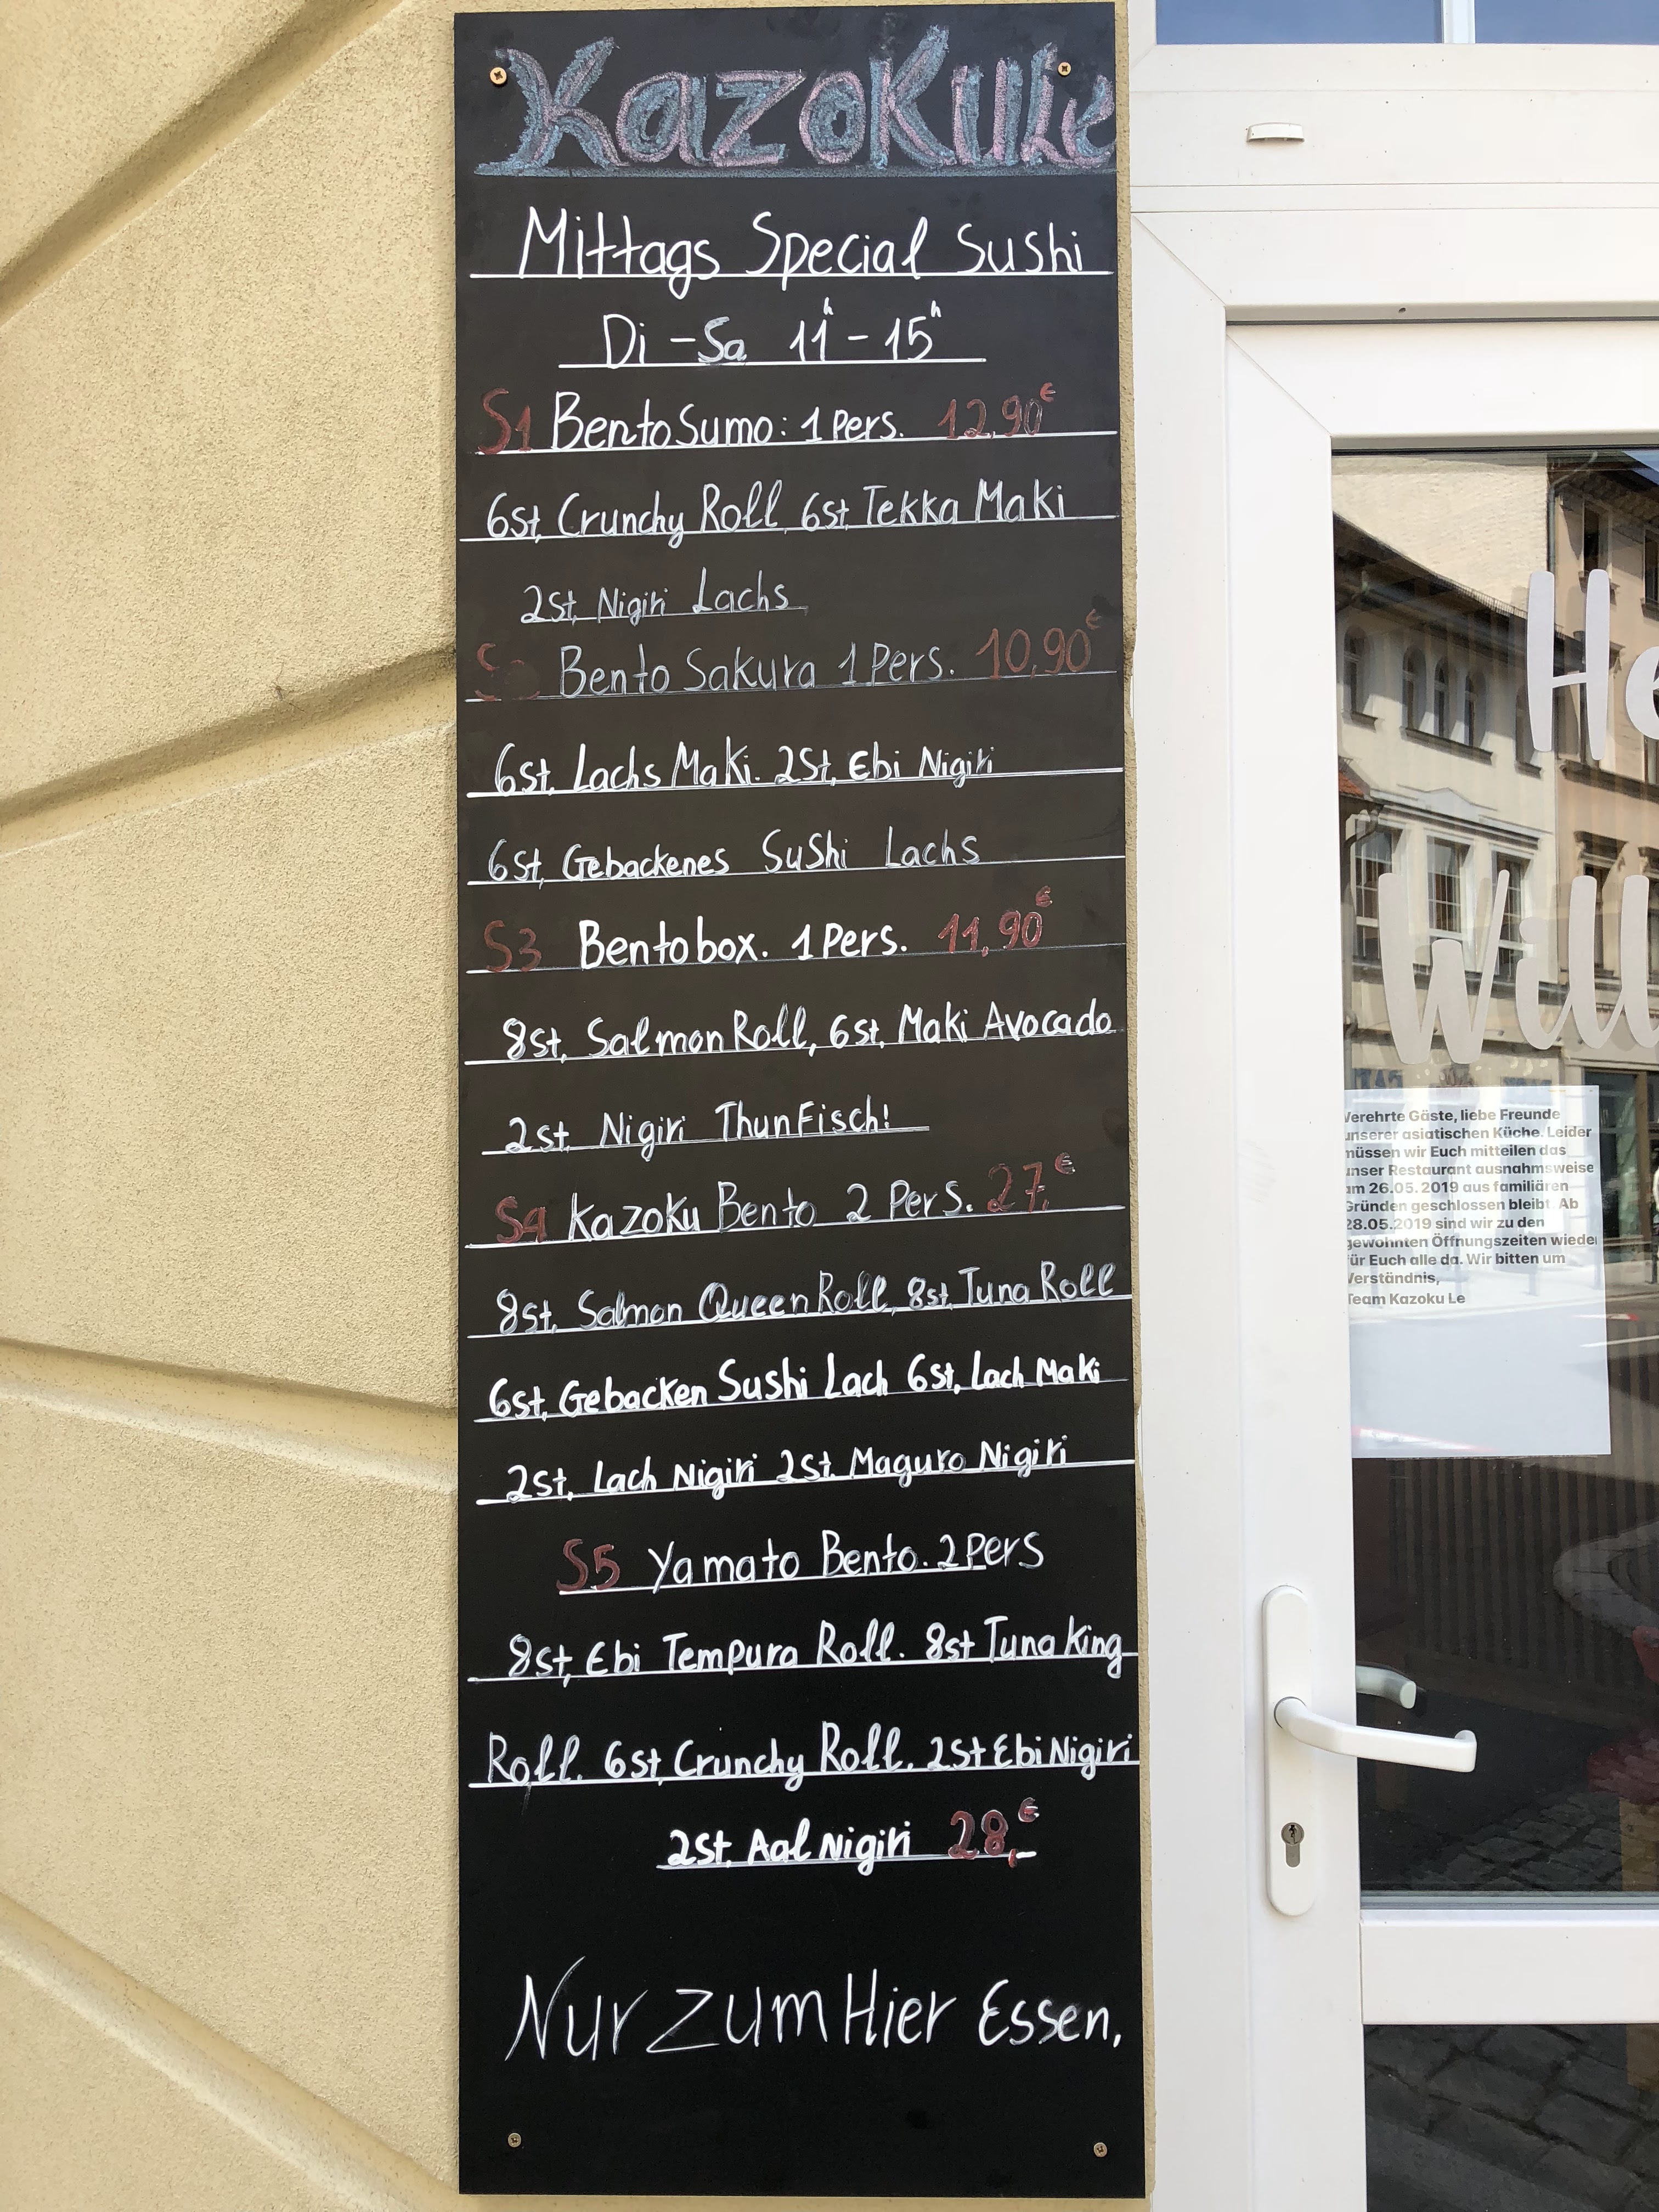 KazoKuLe
Mittags Special Sushi
Di - Sa 11h - 15h
S1 Bento Sumo: 1 Pers. 12,90€
6st, Crunchy Roll, 6st, Tekka Maki
2st, Nigiri Lachs
Bento Sakura 1 Pers. 10,90€
6st, Lachs Maki. 2St, Ebi Nigiri
6st, Gebackenes Sushi Lachs
S3 Bentobox. 1 Pers. 11,90€
8st, Salmon Roll, 6st, Maki Avocado
2st, Nigiri ThunFisch!
S4 Kazoku Bento 2 Pers. 27,€
8st, Salmon Queen Roll, 8st, Tuna Roll
6st, Gebacken Sushi Lach 6st, Lach Maki
2st, Lach Nigiri 2St. Maguro Nigiri
S5 Yamato Bento. 2 Pers
8st, Ebi Tempura Roll. 8st Tuna King
Roll. 6st, Crunchy Roll. 2St Ebi Nigiri
2st, Aal Nigiri 28,-€
Nur zum Hier Essen.
He
Will
Verehrte Gäste, liebe Freunde
unserer asiatischen Küche. Leider
müssen wir Euch mitteilen das
unser Restaurant ausnahmsweise
am 26.05.2019 aus familiären
Gründen geschlossen bleibt. Ab
28.05.2019 sind wir zu den
gewohnten Öffnungszeiten wieder
für Euch alle da. Wir bitten um
Verständnis,
Team Kazoku Le